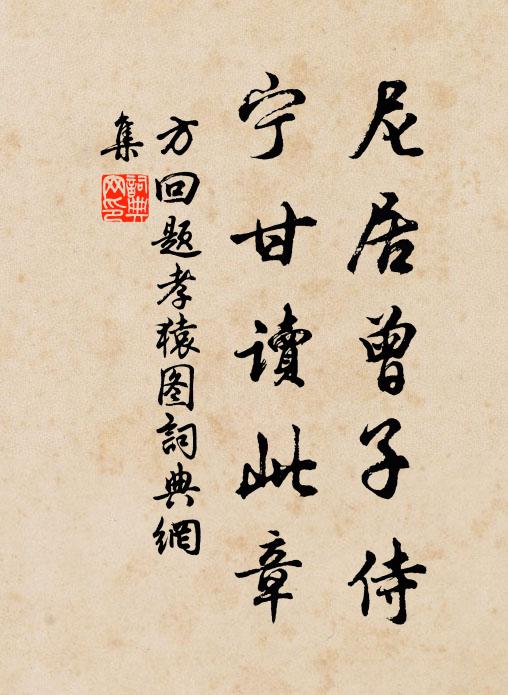 尼居曾子侍
宁甘读此章
方回题孝猿图词典網
集
詞典網印